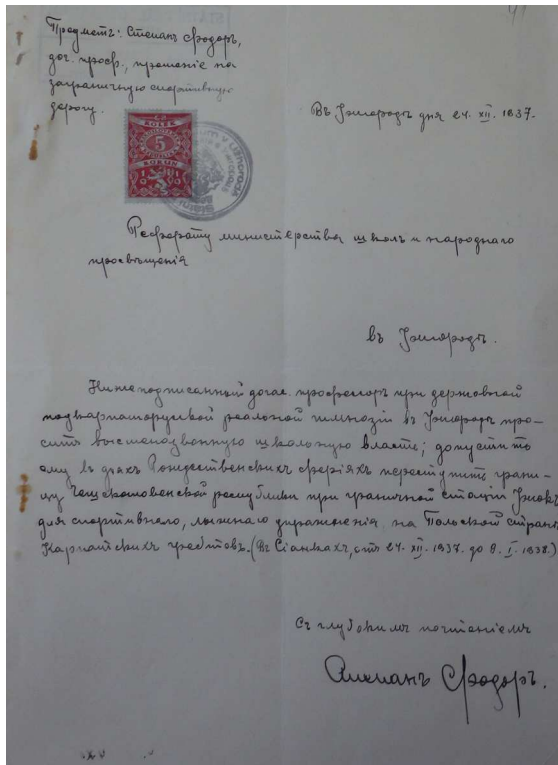 Предметъ: Степанъ Фодоръ,
дог. проф., прошеніе на
заграничную спортивную
дорогу.
Въ Ужгородѣ дня 24. XII. 1937.
KOLEK
5
KORUN
Реферату министерства школъ и народнаго
просвѣщенія
въ Ужгородѣ.
Нижеподписанный догас. профессоръ при державной
подкарпаторусской реальной гимназіи въ Ужгородѣ про-
ситъ вышеназванную школьную власть; допустити
ему въ дняхъ Рождественскихъ феріяхъ переступить грани-
цу Чещсловенской республики при граничной стаціи Ужокъ
для спортивнаго, лыжнаго упражненія на Польской странѣ
Карпатскихъ хребтовъ. (Въ Сіанкахъ, отъ 24. XII. 1937. до 8. I. 1938.)
Съ глубокимъ почтеніемъ
Степанъ Фодоръ.